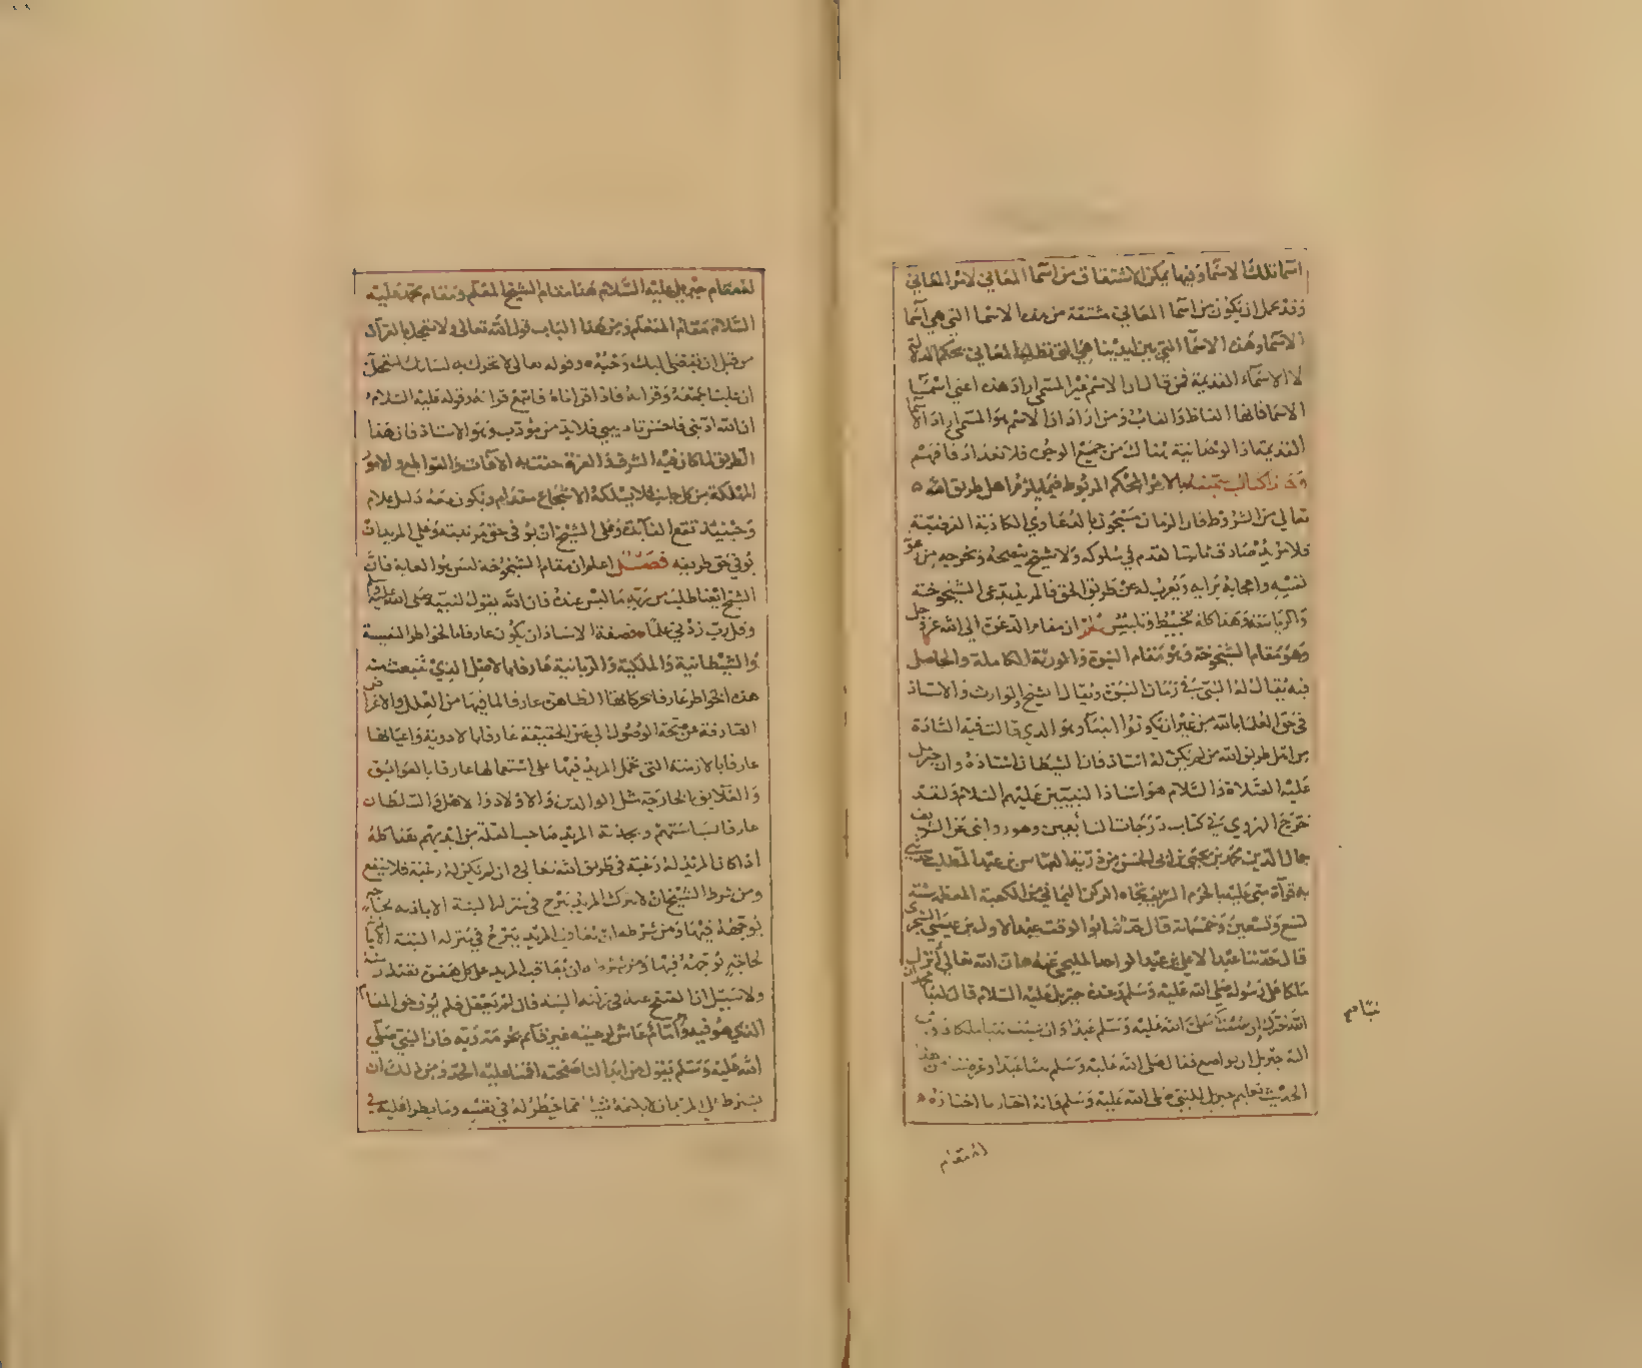 اسما تلك الاسما وفيها يمكن الاشتقاق من اسما المعاني لامن المعاني
وقد يمكن ان تكون من اسما المعاني مشتقة من هذه الاسما التي هي اسما
الاسما وهذه الاسما التي بين ايدينا هي التي تطلبها المعاني بحكم الدلالة
لا الاسماء القديمة فمن قال ان الاسم غير المسمى اراد هذه اعني اسما
الاسما فانها الفاظ والقاب ومن اراد ان الاسم هو المسمى اراد الاسما
القديمة اذ الوحدانية هنالك من جميع الوجوه فلا تعداد فافهم
بالامر المحكم المربوط فيما يلزم اهل طريق الله
تعالى من الشروط فان الزمان مشحون بالدعاوي الكاذبة العريضة
فلا مريد صادق ثابت القدم في سلوكه ولا شيخ ينصحه ويخرجه من رعونة
نفسه واعجابه برايه ويعرب له عن طريق الحق فالمريد يدعي الشيخوخة
وهذا كله تخبيط وتلبيس ان مقام الدعوة الى الله عز وجل
وهو مقام الشيخوخة وهو مقام النبوة والوراثة الكاملة والحاصل
فيه يقال له النبي في زمان النبوة ويقال له الشيخ والوارث والاستاذ
في حق العلما بالله من غير ان يكونوا انبيا وهو الذي قالت فيه السادة
من اهل طريق الله من لم يكن له استاذ فان الشيطان استاذه وان جبريل
عليه الصلاة والسلام هو استاذ النبيين عليهم السلام ولقد
خرج الهروي في كتاب درجات التايبين وهو روايتي عن الشريف
جمال الدين محمد بن يحيى بن ابي الحسن من ذرية العباس بن عبد المطلب حدثني
به قرآة مني عليه بالحرم الشريف تجاه الركن اليماني من الكعبة المعظمة سنة
تسع وتسعين وخمسماية قال حدثنا ابو الوقت عبد الاول بن عيسى السجزي
قال حدثنا عبد الاعلى بن عبد الواحد المليحي ان الله تعالى انزل
ملكا على رسوله صلى الله عليه وسلم وعنده جبريل عليه السلام فقال له يا محمد ان
الله خيرك ان شئت نبيا عبدا وان شئت نبيا ملكا
اليه جبريل ان تواضع فقال صلى الله عليه وسلم نبيا عبدا وغرضنا من هذا
الحديث تعليم جبريل للنبي صلى الله عليه وسلم وانه اختار ما اختاره
فمقام جبريل عليه السلام هنا مقام الشيخ المعلم ومقام محمد عليه
السلام مقام المتعلم ومن هذا الباب قول الله تعالى ولا تعجل بالقرآن
من قبل ان يقضى اليك وحيه وقوله تعالى لا تحرك به لسانك لتعجل به
ان علينا جمعه وقرانه فاذا قراناه فاتبع قرانه وقوله عليه السلام
ان الله ادبني فاحسن تاديبي فلا بد من مؤدب وهو الاستاذ فان هذا
الطريق لما كان فيه الشرف والعزة حفت به الافات والقواطع والامور
المهلكة من كل جانب فلا يسلكه الا شجاع مقدام ويكون معه دليل علام
وحينيذ تقع الفايدة وعلى الشيخ ان يوفي حق مرتبته وعلى المريد ان
يوفي حق طريقه فصل اعلم ان مقام الشيخوخة ليس هو الغاية فان
الشيخ ايضا طالب من ربه ما ليس عنده فان الله يقول لنبيه صلى الله عليه وسلم
وقل رب زدني علما فصفة الاستاذ ان يكون عارفا بالخواطر النفسية
والشيطانية والملكية والربانية عارفا بالاصل الذي تنبعث منه
هذه الخواطر عارفا بحركاتها الظاهرة عارفا لما فيها من العلل والامراض
الصارفة عن صحة الوصول الى عين الحقيقة عارفا بالادوية واعيانها
عارفا بالازمنة التي يحمل المريد فيها على استعمالها عارفا بالعوايق
والعلايق الخارجة مثل الوالدين والاولاد والاهل والسلطان
عارفا بسياستهم وبجذبه المريد صاحب العلة من ايديهم هذا كله
اذا كان المريد له رغبة في طريق الله تعالى وان لم تكن له رغبة فلا ينفع
ومن شرط الشيخ ان لا يترك المريد يبرح في منزله البتة الا باذنه لحاجة
يوجهه فيها ومن شرطه ان يعاقب المريد على كل هفوة
ولا سبيل الى الصفح عنه في زلته البتة فان لم يفعل فلم يوف حق المقام
الذي هو فيه وانما هو امام غاش لرعيته غير قايم بحرمة ربه فان النبي صلى
الله عليه وسلم يقول من ابدا لنا صفحته اقمنا عليه الحد ومن ذلك ان
يشترط على المريد ان لا يكتمه شيئا مما يخطر له في نفسه وما يطرا عليه في